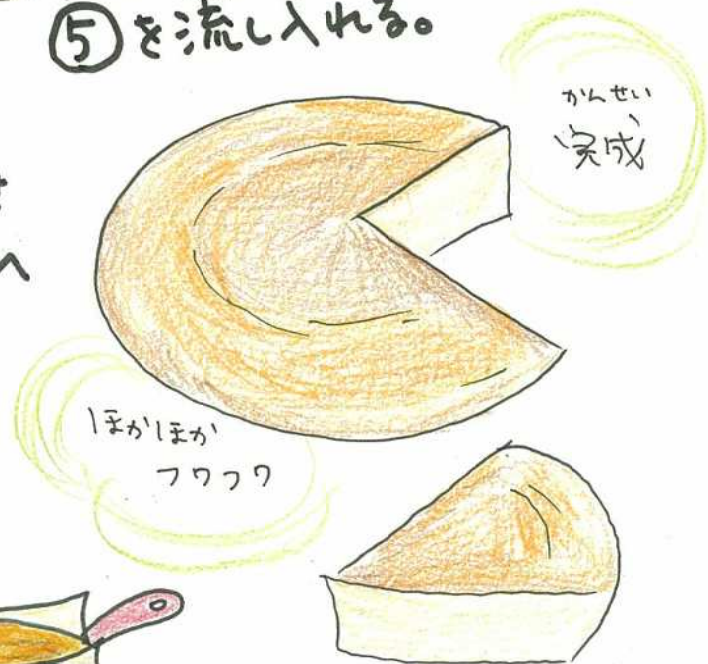 ⑤を流し入れる。
かんせい
完成
へ
ほかほか
フワフワ